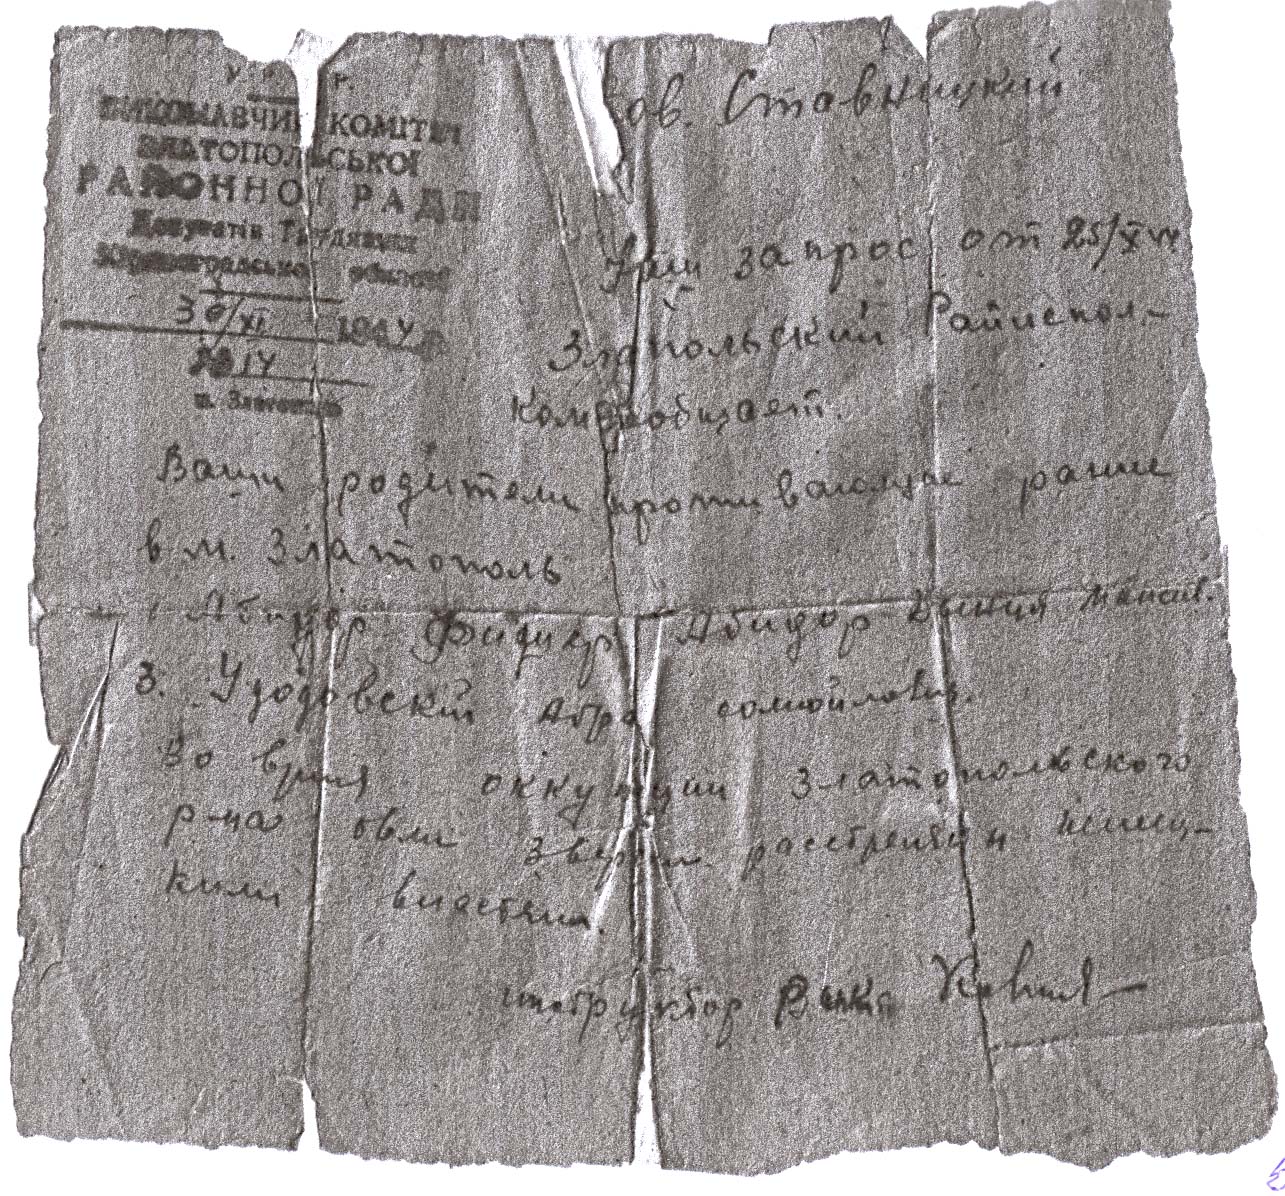 У Р. С. Р.
ВИКОНАВЧИЙ КОМІТЕТ
ЗЛАТОПОЛЬСЬКОЇ
РАЙОННОЇ РАДИ
Депутатів Трудящих
Кіровоградської області
30/XI 1944 р.
№ 14
м. Златопіль
Тов. Ставницкий
На запрос от 25/X
Златопольский Райиспол-
ком сообщает.
Ваши родители проживающие ранее
в м. Златополь
Абидор Фишер Абидор
3. Удодовский Абра самойлович.
Во время оккупации Златопольского
р-на были зверски расстреляны немец-
кими властями.
инструктор